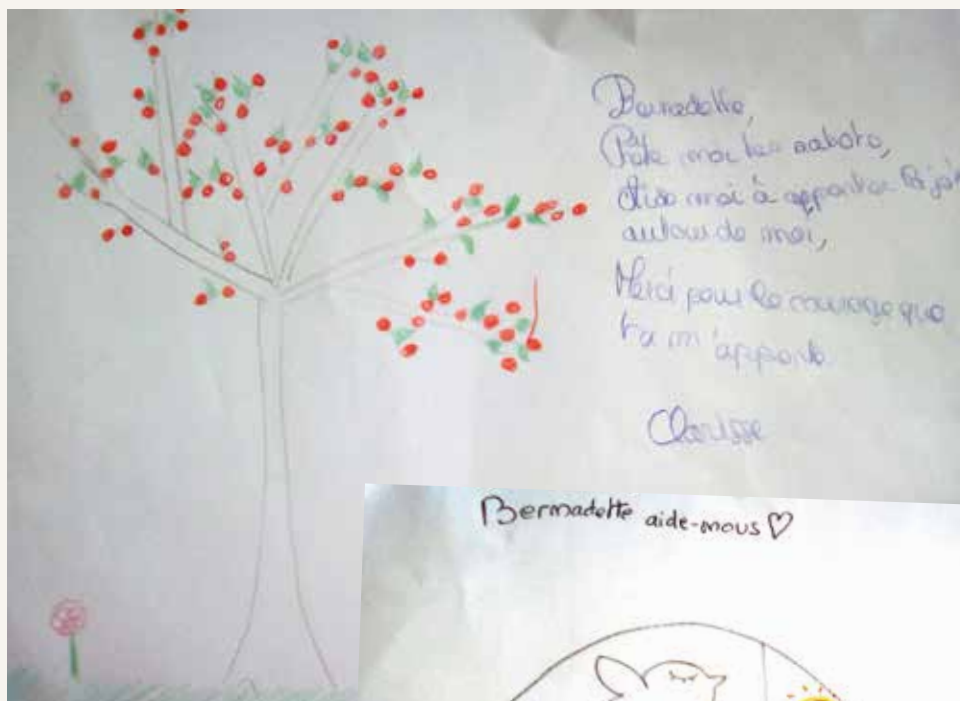 Bernadette,
Prête moi tes sabots,
Aide moi à apporter la joie
autour de moi,
Merci pour le courage que
tu m'apporte
Clarisse
Bernadette aide-nous ♡